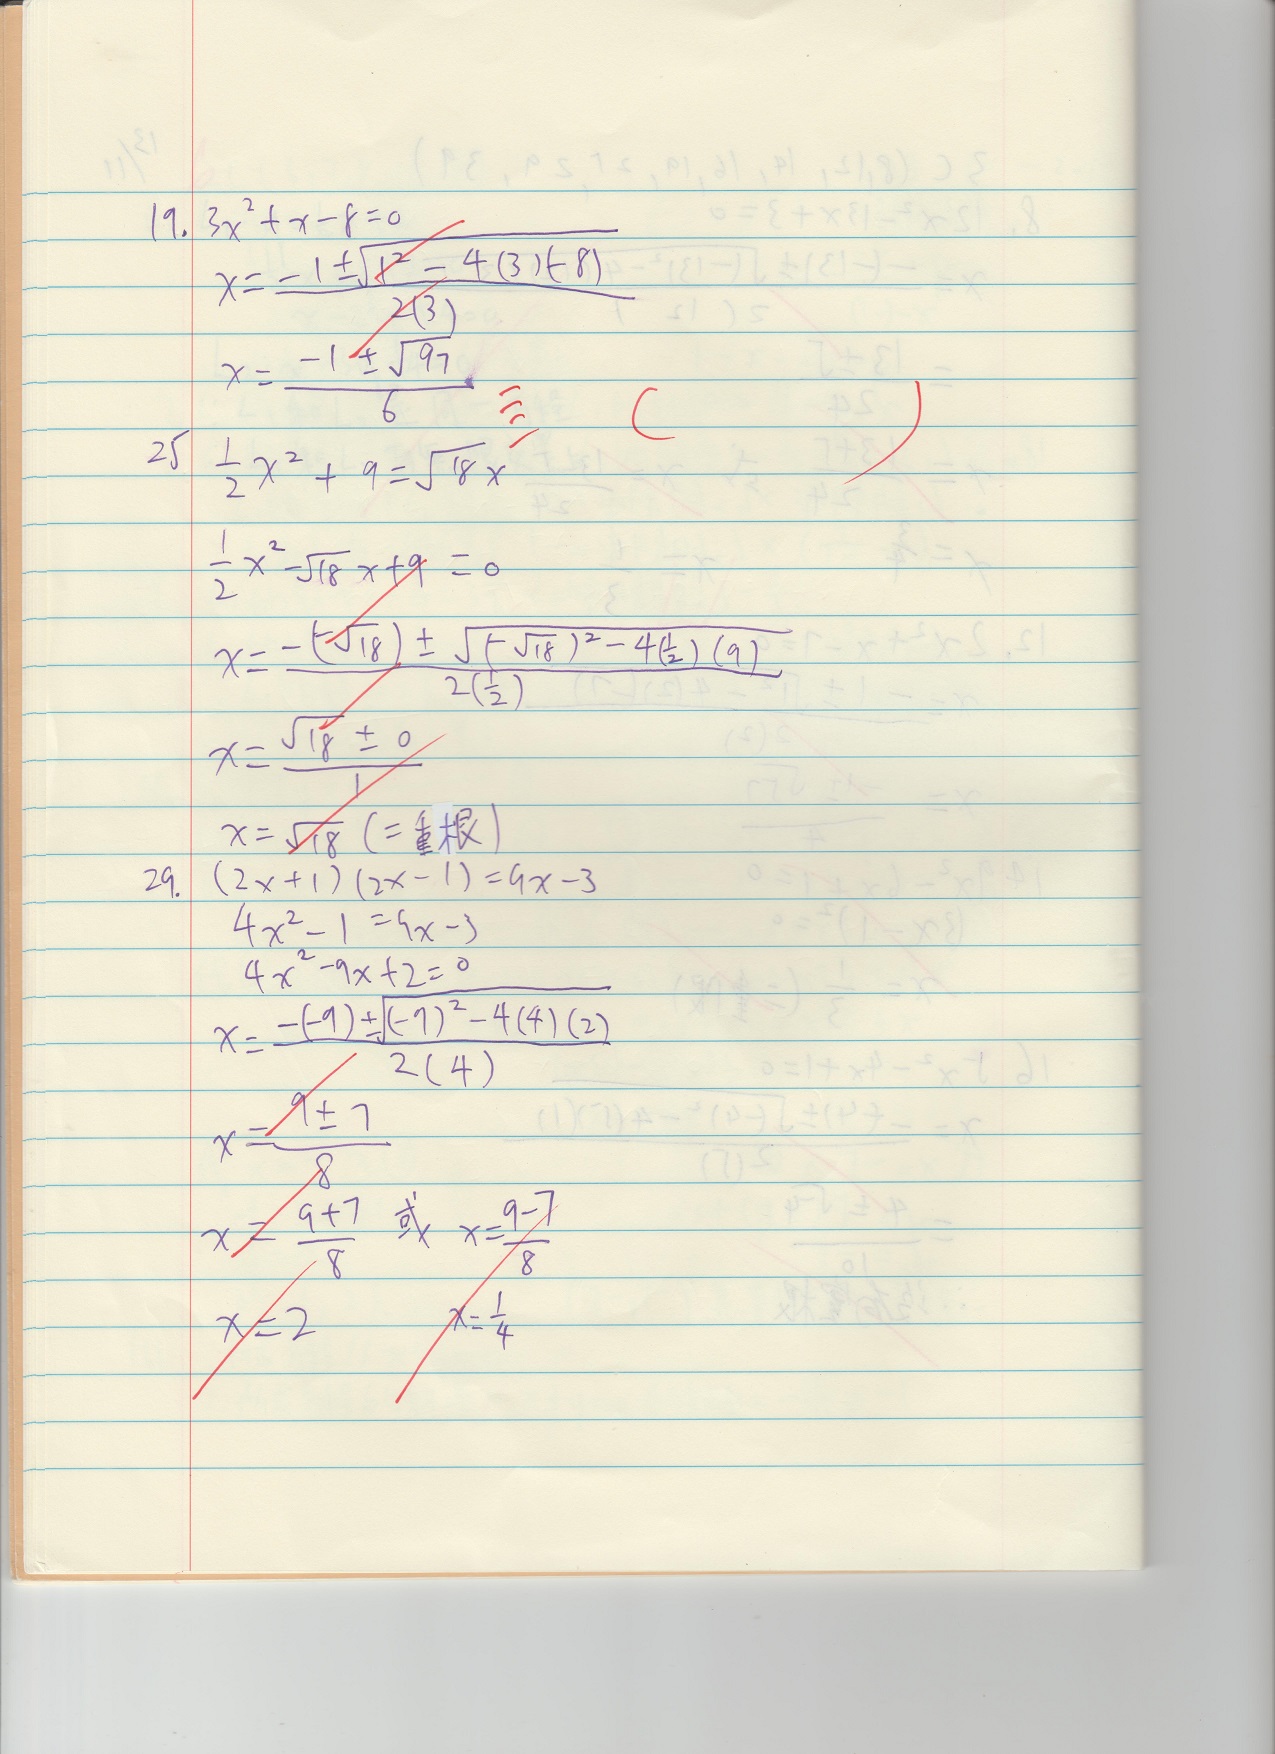 19. 3x²+x-8=0
x= (-1±√(1²-4(3)(-8)))/(2(3))
x= (-1±√97)/6
25 1/2x²+9=√18x
1/2x²-√18x+9=0
x= (-(-√18)±√((-√18)²-4(1/2)(9)))/(2(1/2))
x= (√18±0)/1
x=√18 (=重根)
29. (2x+1)(2x-1)=9x-3
4x²-1=9x-3
4x²-9x+2=0
x= (-(-9)±√((-9)²-4(4)(2)))/(2(4))
x= (9±7)/8
x= (9+7)/8 或 x= (9-7)/8
x=2 x=1/4